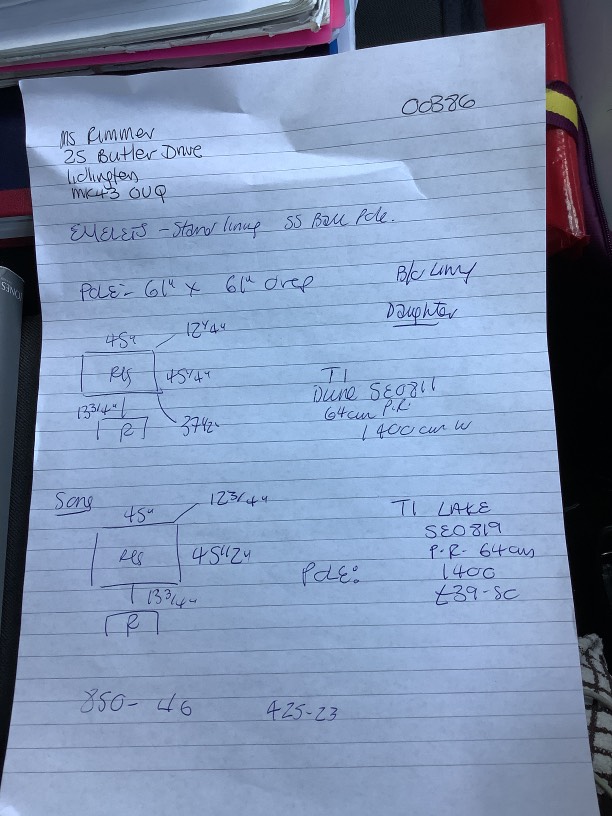 00386
Ms Rimmer
25 Butler Drive
Lidlington
MK43 0UQ
EYELETS - Stand lining SS Ball Pole.
Pole:- 61" x 61" drop
B/c lining
Daughter
45"
12 1/4"
Res
45 1/4"
13 3/4"
R
37 1/2"
T1
Dune SE0811
64cm P.R.
1400cm W
Sons
45"
12 3/4"
Res
45 1/2"
13 3/4"
R
Pole:
T1 LAKE
SE0819
P.R. 64cm
1400
£39-50
850-46
425-23